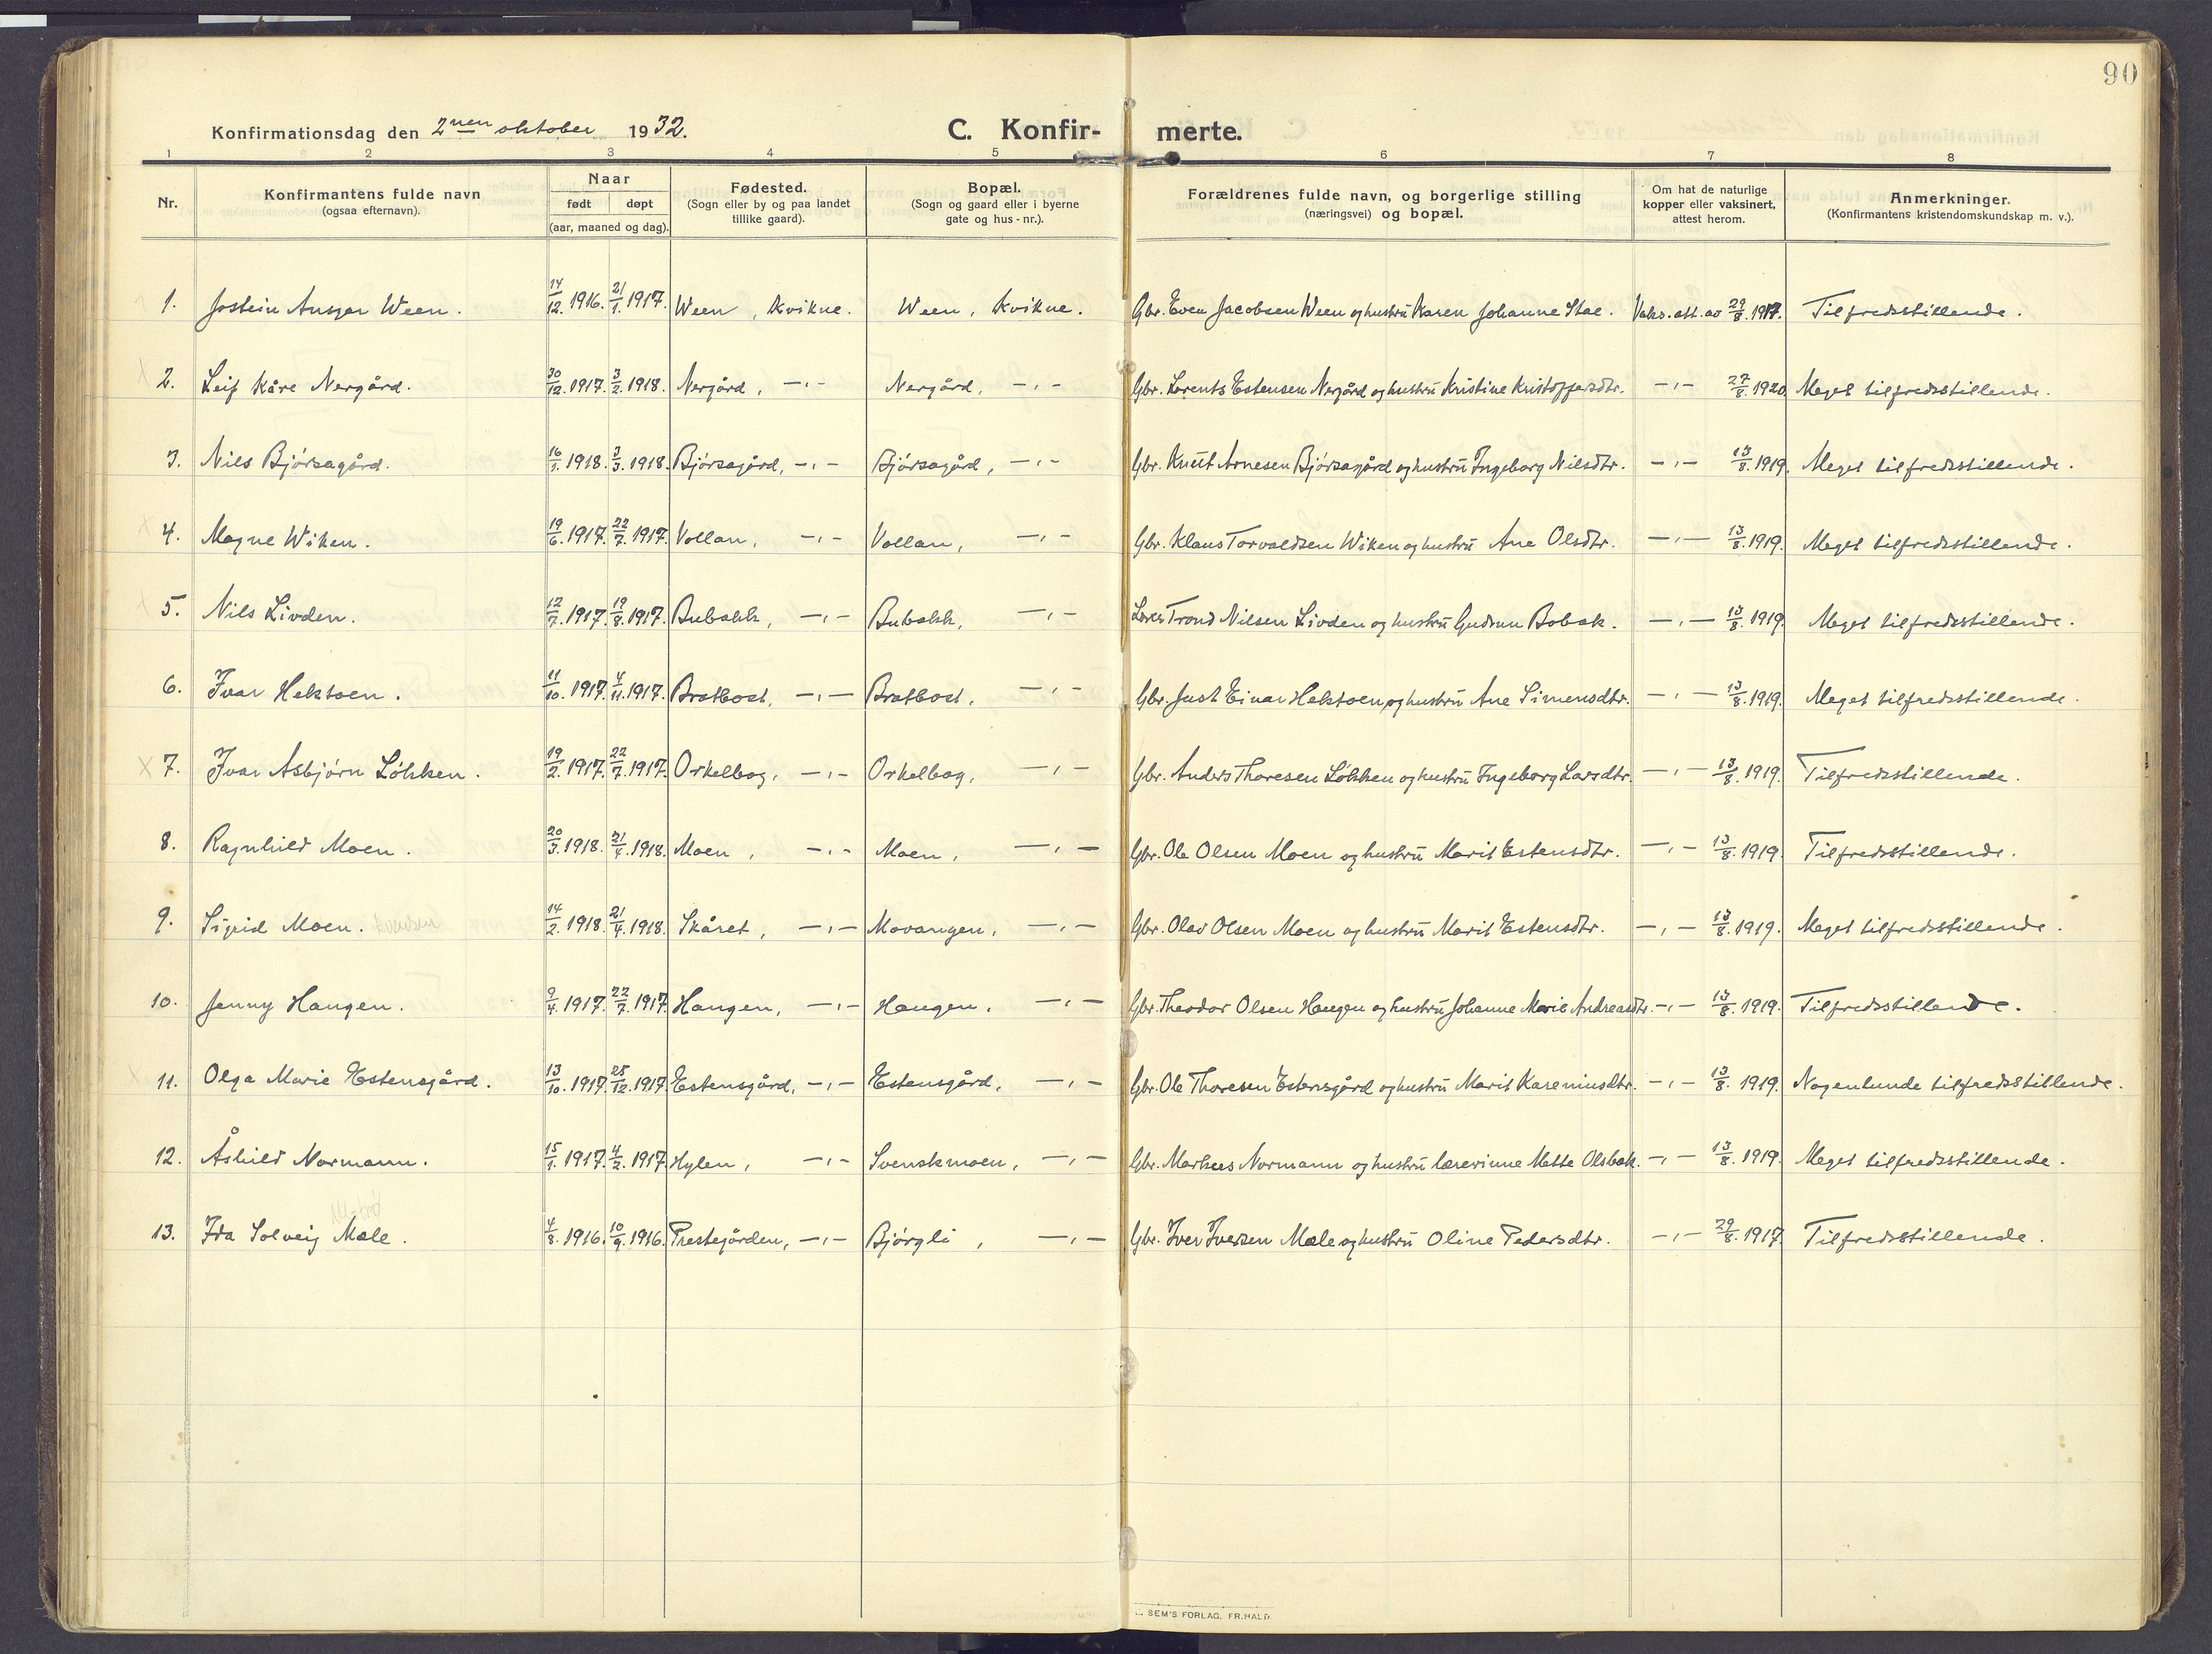 90
Konfirmationsdag den 2nen oktober 1932. C. Konfir- merte.
1 2 3 4 5 6 7 8
Nr. Konfirmantens fulde navn (ogsaa efternavn). Naar født døpt (aar, maaned og dag). Fødested. (Sogn eller by og paa landet tillike gaard). Bopæl. (Sogn og gaard eller i byerne gate og hus-nr.). Forældrenes fulde navn, og borgerlige stilling (næringsvei) og bopæl. Om hat de naturlige kopper eller vaksinert, attest herom. Anmerkninger. (Konfirmantens kristendomskundskap m. v.).
1. Jostein Ansgar Ween. 14/12. 1916. 21/1. 1917. Ween, Kvikne. Ween, Kvikne. Gbr. Even Jacobsen Ween og hustru Karen Johanne Stae. Vaks. att. av 29/8. 1917. Tilfredsstillende.
2. Leif Kåre Nergård. 30/12. 1917. 3/2. 1918. Nergård, -,- Nergård, -,- Gbr. Lorents Estensen Nergård og hustru Kristine Kristoffersdtr. -,- 27/8. 1920. Meget tilfredsstillende.
3. Nils Bjørsagård. 16/1. 1918. 3/3. 1918. Bjørsagård, -,- Bjørsagård, -,- Gbr. Knut Arnesen Bjørsagård og hustru Ingeborg Nilsdtr. -,- 13/8. 1919. Meget tilfredsstillende.
4. Magne Wiken. 19/6. 1917. 22/7. 1917. Vollan, -,- Vollan, -,- Gbr. Klaus Torvaldsen Wiken og hustru Ane Olsdtr. -,- 13/8. 1919. Meget tilfredsstillende.
5. Nils Livden. 12/7. 1917. 19/8. 1917. Bubakk, -,- Bubakk, -,- Trond Nilsen Livden og hustru Gudrun Bobak. -,- 13/8. 1919. Meget tilfredsstillende.
6. Ivar Hektoen. 11/10. 1917. 4/11. 1917. Bratbost, -,- Bratbost, -,- Gbr. Just Einar Hektoen og hustru Ane Simensdtr. -,- 13/8. 1919. Meget tilfredsstillende.
X 7. Ivar Asbjørn Løkken. 19/2. 1917. 22/7. 1917. Orkelbog, -,- Orkelbog, -,- Gbr. Anders Thoresen Løkken og hustru Ingeborg Larsdtr. -,- 13/8. 1919. Tilfredsstillende.
8. Ragnhild Moen. 20/3. 1918. 21/4. 1918. Moen, -,- Moen, -,- Gbr. Ole Olsen Moen og hustru Marit Estensdtr. -,- 13/8. 1919. Tilfredsstillende.
9. Sigrid Moen. 14/2. 1918. 21/4. 1918. Skåret, -,- Movangen, -,- Gbr. Olav Olsen Moen og hustru Marit Estensdtr. -,- 13/8. 1919. Meget tilfredsstillende.
10. Jenny Haugen. 9/4. 1917. 22/7. 1917. Haugen, -,- Haugen, -,- Gbr. Theodor Olsen Haugen og hustru Johanne Marie Andreasdtr. -,- 13/8. 1919. Tilfredsstillende.
11. Olga Marie Estensgård. 13/10. 1917. 25/12. 1917. Estensgård, -,- Estensgård, -,- Gbr. Ole Thoresen Estensgård og hustru Marit Kareniusdtr. -,- 13/8. 1919. Nogenlunde tilfredsstillende.
12. Åshild Normann. 15/1. 1917. 4/2. 1917. Hylen, -,- Svenskmoen, -,- Gbr. Markus Normann og hustru lærerinne Mette Olsbak. -,- 13/8. 1919. Meget tilfredsstillende.
13. Ida Solveig Mæle. 4/8. 1916. 10/9. 1916. Prestegården, -,- Bjørgli, -,- Gbr. Iver Iversen Mæle og hustru Oline Pedersdtr. -,- 29/8. 1917. Tilfredsstillende.
SEM'S FORLAG, FR.HALD